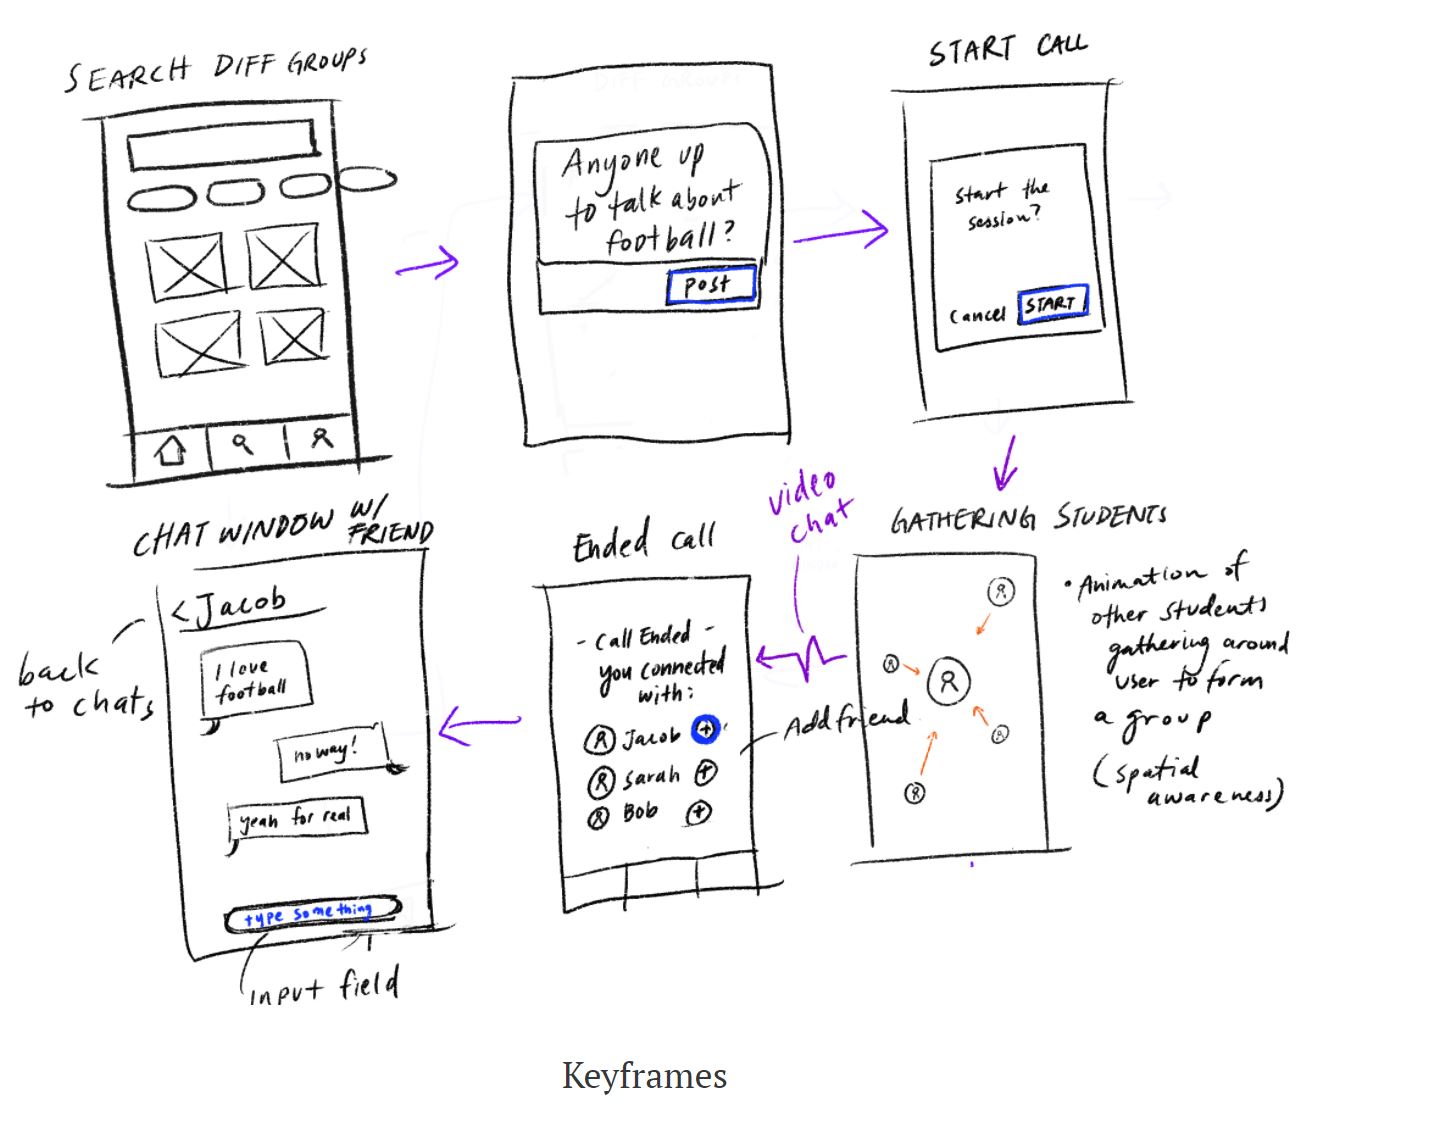 SEARCH DIFF GROUPS
Anyone up
to talk about
football?
Post
START CALL
Start the
session?
Cancel START
GATHERING STUDENTS
• Animation of
other students
gathering around
user to form
a group
(spatial
awareness)
video
chat
Ended call
- Call Ended -
you connected
with:
Jacob +
Sarah +
Bob +
Add friend
CHAT WINDOW W/
FRIEND
< Jacob
I love
football
no way!
yeah for real
type something
back
to chats
input field
Keyframes